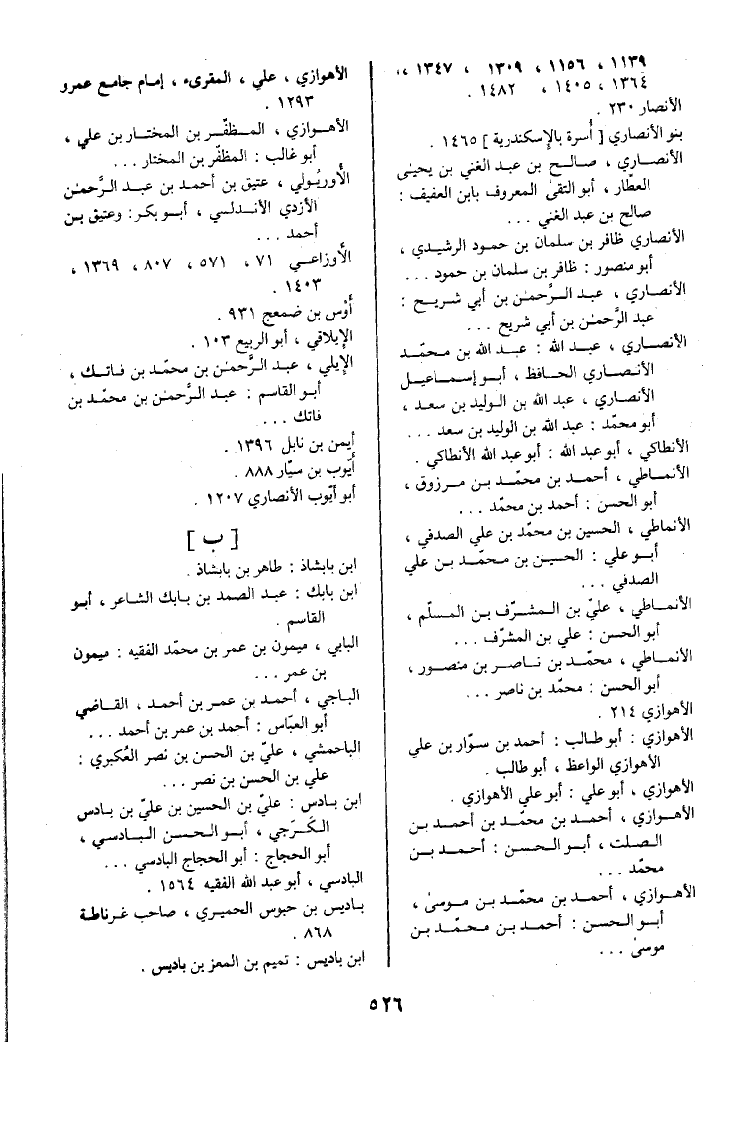 ١١٣٩ ، ١١٥٦ ، ١٣٠٩ ، ١٣٤٧ ،
١٣٦٤ ، ١٤٠٥ ، ١٤٨٢ .
الأنصار ٢٣٠ .
بنو الأنصاري [ أسرة بالإسكندرية ] ١٤٦٥ .
الأنصاري ، صالح بن عبد الغني بن يحيىٰ
العطّار ، أبو التقىٰ المعروف بابن العفيف :
صالح بن عبد الغني ...
الأنصاري ظافر بن سلمان بن حمود الرشيدي ،
أبو منصور : ظافر بن سلمان بن حمود ...
الأنصاري ، عبد الرَّحمٰن بن أبي شريح :
عبد الرَّحمٰن بن أبي شريح ...
الأنصاري ، عبد الله : عبد الله بن محمّد
الأنصاري الحافظ ، أبو إسماعيل
الأنصاري ، عبد الله بن الوليد بن سعد ،
أبو محمّد : عبد الله بن الوليد بن سعد ...
الأنطاكي ، أبو عبد الله : أبو عبد الله الأنطاكي .
الأنماطي ، أحمد بن محمّد بن مرزوق ،
أبو الحسن : أحمد بن محمّد ...
الأنماطي ، الحسين بن محمّد بن علي الصدفي ،
أبو علي : الحسين بن محمّد بن علي
الصدفي ...
الأنماطي ، عليّ بن المشرّف بن المسلّم ،
أبو الحسن : علي بن المشرّف ...
الأنماطي ، محمّد بن ناصر بن منصور ،
أبو الحسن : محمّد بن ناصر ...
الأهوازي ٢١٤ .
الأهوازي : أبو طالب : أحمد بن سوّار بن علي
الأهوازي الواعظ ، أبو طالب .
الأهوازي ، أبو علي : أبو علي الأهوازي .
الأهوازي ، أحمد بن محمّد بن أحمد بن
الصلت ، أبو الحسن : أحمد بن
محمّد ...
الأهوازي ، أحمد بن محمّد بن موسىٰ ،
أبو الحسن : أحمد بن محمّد بن
موسىٰ ...
الأهوازي ، علي ، المقرىء ، إمام جامع عمرو
١٢٩٣ .
الأهوازي ، المظفّر بن المختار بن علي ،
أبو غالب : المظفّر بن المختار ...
الأُوريُولي ، عتيق بن أحمد بن عبد الرَّحمٰن
الأزدي الأندلسي ، أبو بكر : وعتيق بن
أحمد ...
الأوزاعي ٧١ ، ٥٧١ ، ٨٠٧ ، ١٣٦٩ ،
١٤٠٣ .
أوْس بن ضمعج ٩٣١ .
الإيلاقي ، أبو الربيع ١٠٣ .
الإيلي ، عبد الرَّحمٰن بن محمّد بن فاتك ،
أبو القاسم : عبد الرَّحمٰن بن محمّد بن
فاتك ...
أيمن بن نابل ١٣٩٦ .
أيّوب بن سيّار ٨٨٨ .
أبو أيّوب الأنصاري ١٢٠٧ .
[ ب ]
ابن بابشاذ : طاهر بن بابشاذ .
ابن بابك : عبد الصمد بن بابك الشاعر ، أبو
القاسم .
البابي ، ميمون بن عمر بن محمّد الفقيه : ميمون
بن عمر ...
الباجي ، أحمد بن عمر بن أحمد ، القاضي
أبو العبّاس : أحمد بن عمر بن أحمد ...
الباحمشي ، عليّ بن الحسن بن نصر العُكبري :
علي بن الحسن بن نصر ...
ابن بادس : عليّ بن الحسين بن عليّ بن بادس
الكَرَجي ، أبو الحسن البادسي ،
أبو الحجاج : أبو الحجاج البادسي ...
البادسي ، أبو عبد الله الفقيه ١٥٦٤ .
باديس بن حبوس الحميري ، صاحب غرناطة
٨٦٨ .
ابن باديس : تميم بن المعز بن باديس .
٥٢٦